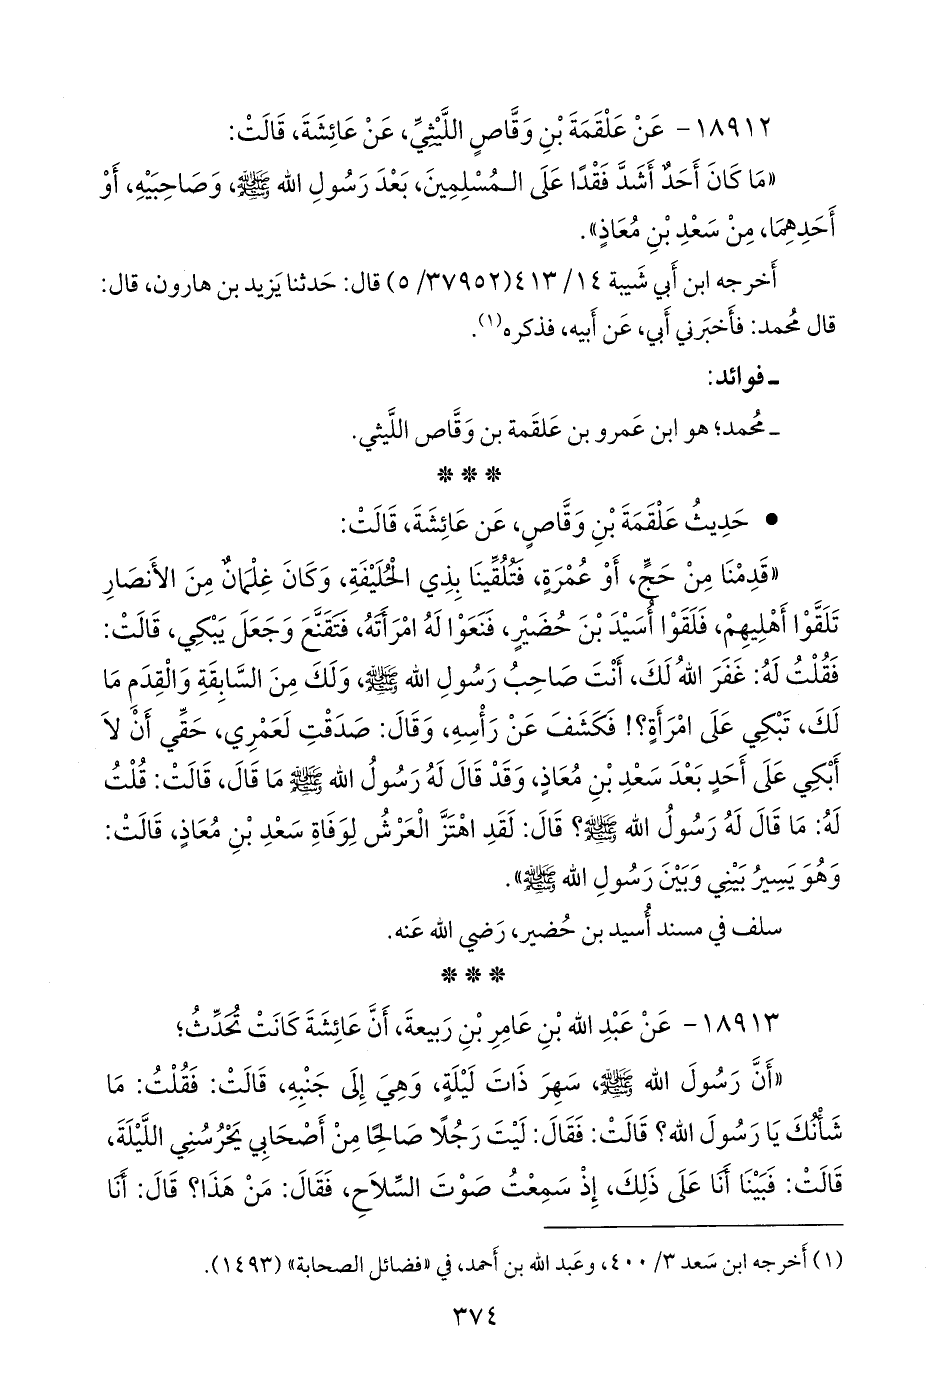 ١٨٩١٢- عَنْ عَلْقَمَةَ بْنِ وَقَّاصٍ اللَّيْثِيِّ، عَنْ عَائِشَةَ، قَالَتْ:
«مَا كَانَ أَحَدٌ أَشَدَّ فَقْدًا عَلَى الـمُسْلِمِينَ، بَعْدَ رَسُولِ الله ﷺ، وَصَاحِبَيْهِ، أَوْ
أَحَدِهِمَا، مِنْ سَعْدِ بْنِ مُعَاذٍ».
أَخرجه ابن أَبي شَيبة ١٤/ ٤١٣(٣٧٩٥٢/ ٥) قال: حَدثنا يَزيد بن هارون، قال:
قال مُحمد: فأَخبَرني أَبي، عَن أَبيه، فذكره(١).
ـ فوائد:
ـ مُحمد؛ هو ابن عَمرو بن عَلقَمة بن وَقَّاص اللَّيثي.
* * *
• حَدِيثُ عَلْقَمَةَ بْنِ وَقَّاصٍ، عَن عَائِشَةَ، قَالَتْ:
«قَدِمْنَا مِنْ حَجٍّ، أَوْ عُمْرَةٍ، فَتُلُقِّينَا بِذِي الْحُلَيْفَةِ، وَكَانَ غِلْمَانٌ مِنَ الأَنصَارِ
تَلَقَّوْا أَهْلِيهِمْ، فَلَقَوْا أُسَيْدَ بْنَ حُضَيْرٍ، فَنَعَوْا لَهُ امْرَأَتَهُ، فَتَقَنَّعَ وَجَعَلَ يَبْكِي، قَالَتْ:
فَقُلْتُ لَهُ: غَفَرَ اللهُ لَكَ، أَنْتَ صَاحِبُ رَسُولِ الله ﷺ، وَلَكَ مِنَ السَّابِقَةِ وَالْقِدَمِ مَا
لَكَ، تَبْكِي عَلَى امْرَأَةٍ؟! فَكَشَفَ عَنْ رَأْسِهِ، وَقَالَ: صَدَقْتِ لَعَمْرِي، حَقِّي أَنْ لاَ
أَبْكِي عَلَى أَحَدٍ بَعْدَ سَعْدِ بْنِ مُعَاذٍ، وَقَدْ قَالَ لَهُ رَسُولُ الله ﷺ مَا قَالَ، قَالَتْ: قُلْتُ
لَهُ: مَا قَالَ لَهُ رَسُولُ الله ﷺ؟ قَالَ: لَقَدِ اهْتَزَّ الْعَرْشُ لِوَفَاةِ سَعْدِ بْنِ مُعَاذٍ، قَالَتْ:
وَهُوَ يَسِيرُ بَيْنِي وَبَيْنَ رَسُولِ الله ﷺ».
سلف في مسند أُسيد بن حُضير، رَضي الله عَنه.
* * *
١٨٩١٣- عَنْ عَبْدِ الله بْنِ عَامِرِ بْنِ رَبِيعةَ، أَنَّ عَائِشَةَ كَانَتْ تُحَدِّثُ؛
«أَنَّ رَسُولَ الله ﷺ، سَهِرَ ذَاتَ لَيْلَةٍ، وَهِيَ إِلَى جَنْبِهِ، قَالَتْ: فَقُلْتُ: مَا
شَأْنُكَ يَا رَسُولَ الله؟ قَالَتْ: فَقَالَ: لَيْتَ رَجُلًا صَالِحًا مِنْ أَصْحَابِي يَحْرُسُنِي اللَّيْلَةَ،
قَالَتْ: فَبَيْنَا أَنَا عَلَى ذَلِكَ، إِذْ سَمِعْتُ صَوْتَ السِّلاَحِ، فَقَالَ: مَنْ هَذَا؟ قَالَ: أَنَا
(١) أَخرجه ابن سَعد ٣/ ٤٠٠، وعَبد الله بن أَحمد، في «فضائل الصحابة» (١٤٩٣).
٣٧٤